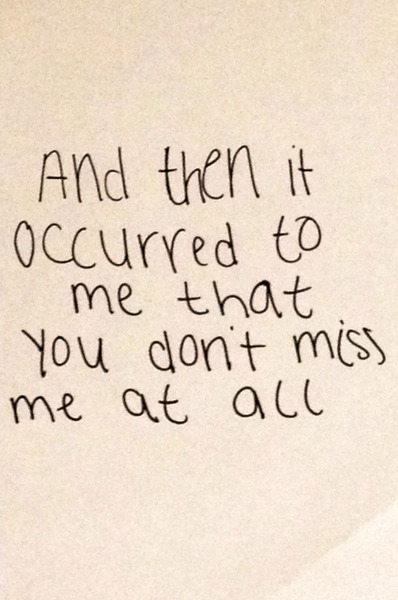 And then it
occurred to
me that
you don't miss
me at all